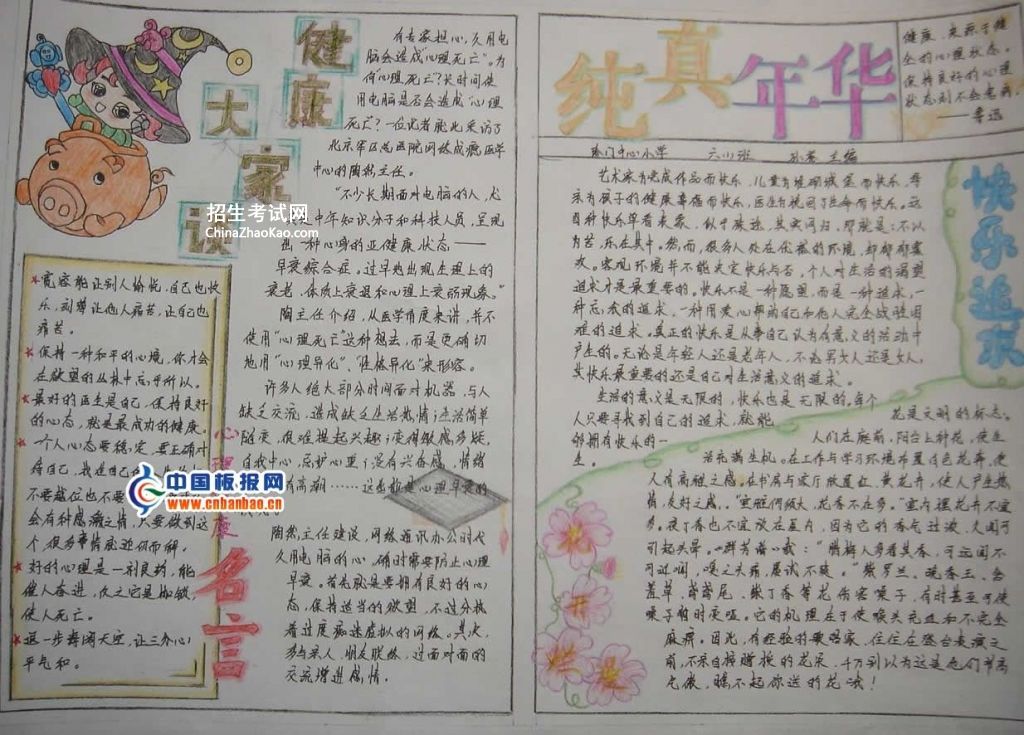 健康
大家谈
有专家担心,久用电
脑会造成“心理死亡”。为
何心理死亡?长时间使
用电脑是否会造成“心理
死亡”?一位记者就此采访了
北京军区总医院网络成瘾医学
中心的陶然主任。
“不少长期面对电脑的人,尤
其是中年知识分子和科技人员,呈现
出一种心身的亚健康状态——
早衰综合症。过早地出现生理上的
衰老,体质上衰退和心理上衰弱现象。”
陶主任介绍,从医学角度来讲,并不
使用“心理死亡”这种提法,而是更确切
地用“心理异化”、“性格异化”来形容。
许多人绝大部分时间面对机器,与人
缺乏交流,造成缺乏生活热情;生活简单
随便,很难提起兴趣;变得敏感多疑,
自我中心,忌妒心重;没有兴奋感,情绪
有高潮……这也就是心理早衰的
陶然主任建议,网络通讯办公时代
久用电脑的心,确时需要防止心理
早衰。首先就是要拥有良好的心
态,保持适当的欲望,不过分执
着过度痴迷虚拟的网络。其次,
多与亲人、朋友联络,过面对面的
交流增进感情。
招生考试网
ChinaZhaoKao.com
宽容能让别人愉悦,自己也快
乐,刻薄让他人痛苦,让自己也
痛苦。
保持一种和平的心境,你才会
在欲望的丛林中忘乎所以。
最好的医生是自己,保持良好
的心态,就是最成功的健康。
一个人心态要稳定,要正确对
待自己,我是
不要越位也不要
会有种感激之情,只要做到这
个,很多事情应迎似而解。
好的心理是一剂良药,能
催人奋进,反之它是枷锁,
使人死亡。
退一步海阔天空,让三分心
平气和。
心理健康
名言
中国板报网
www.cnbanbao.cn
纯真年华
健康,来源于健
全的心理状态。
保持良好的心理
状态则不会患病。
——鲁迅
中心小学 六(1)班 主编
快乐追求
艺术家为完成作品而快乐,儿童为堆砌城堡而快乐,母
亲为孩子的健康幸福而快乐,医生为挽回了生命而快乐。这
四种快乐单看来象,似乎殊途,其实同归,那就是:不以
为苦,乐在其中。然而,很多人处在优越的环境,却郁郁寡
欢。客观环境并不能决定快乐与否,个人对生活的渴望
追求才是最重要的。快乐不是一种愿望,而是一种追求,一
种忘我的追求,一种用爱心帮助自己和他人完全战胜困
难的追求。真正的快乐是从事自己认为有意义的活动中
产生的。无论是年轻人还是老年人,不论男女人还是女人,
其快乐最重要的还是自己对生活意义的追求。
生活的意义是无限的,快乐也是无限的。每个
人只要寻找到自己的追求,就能
够拥有快乐的一
生。
花是文明的标志。
人们在庭前、阳台上种花,使生
活充满生机。在工作与学习环境布置白色花卉,使
人有高雅之感。在书房与客厅放置红、黄花卉,使人产生热
情、友好之感。“室雅何须大,花香不在多。室内摆花卉不宜
多。夜丁香也不宜放在室内,因为它的香气过浓,久闻可
引起头晕。《群芳谱》载:“腊梅人多看其香,可远闻不
可近闻,嗅之头痛,屡试不爽。”紫罗兰、晚香玉、含
羞草、鸢鸢尾、紫丁香等花伤害嗓子,有时甚至可使
嗓子暂时变哑。它的机理在于使喉头充血和不完全
麻痹。因此,有经验的歌唱家,往往在登台表演之
前,不亲自接赠接的花朵,千万别以为这是他们清高